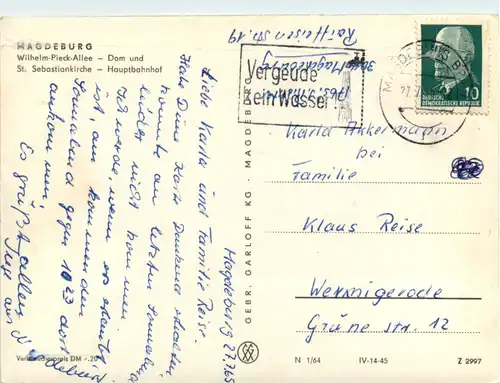 MAGDEBURG
Wilhelm-Pieck-Allee — Dom und
St. Sebastiankirche — Hauptbahnhof
Raiffeisen str. 19
Vergeude
kein Wasser!
DEUTSCHE
DEMOKRATISCHE REPUBLIK
10
Magdeburg 27.7.65
Liebe Karla und Familie Reise.
Habe Deine Karte Dankend erhalten,
konnte am letzten Sonnabend
leider nicht kommen.
Ich werde, wenn es erlaubt
ist, am kommenden
Sonnabend gegen 10 23 dort
ankommen,
Es grüßt allen
aus
Karla Akkermann
bei
Familie
Klaus Reise
Wernigerode
Grüne str. 12
GEBR. GARLOFF KG. MAGDEBURG
Verbraucherpreis DM -,20
N 1/64
IV-14-45
Z 2997